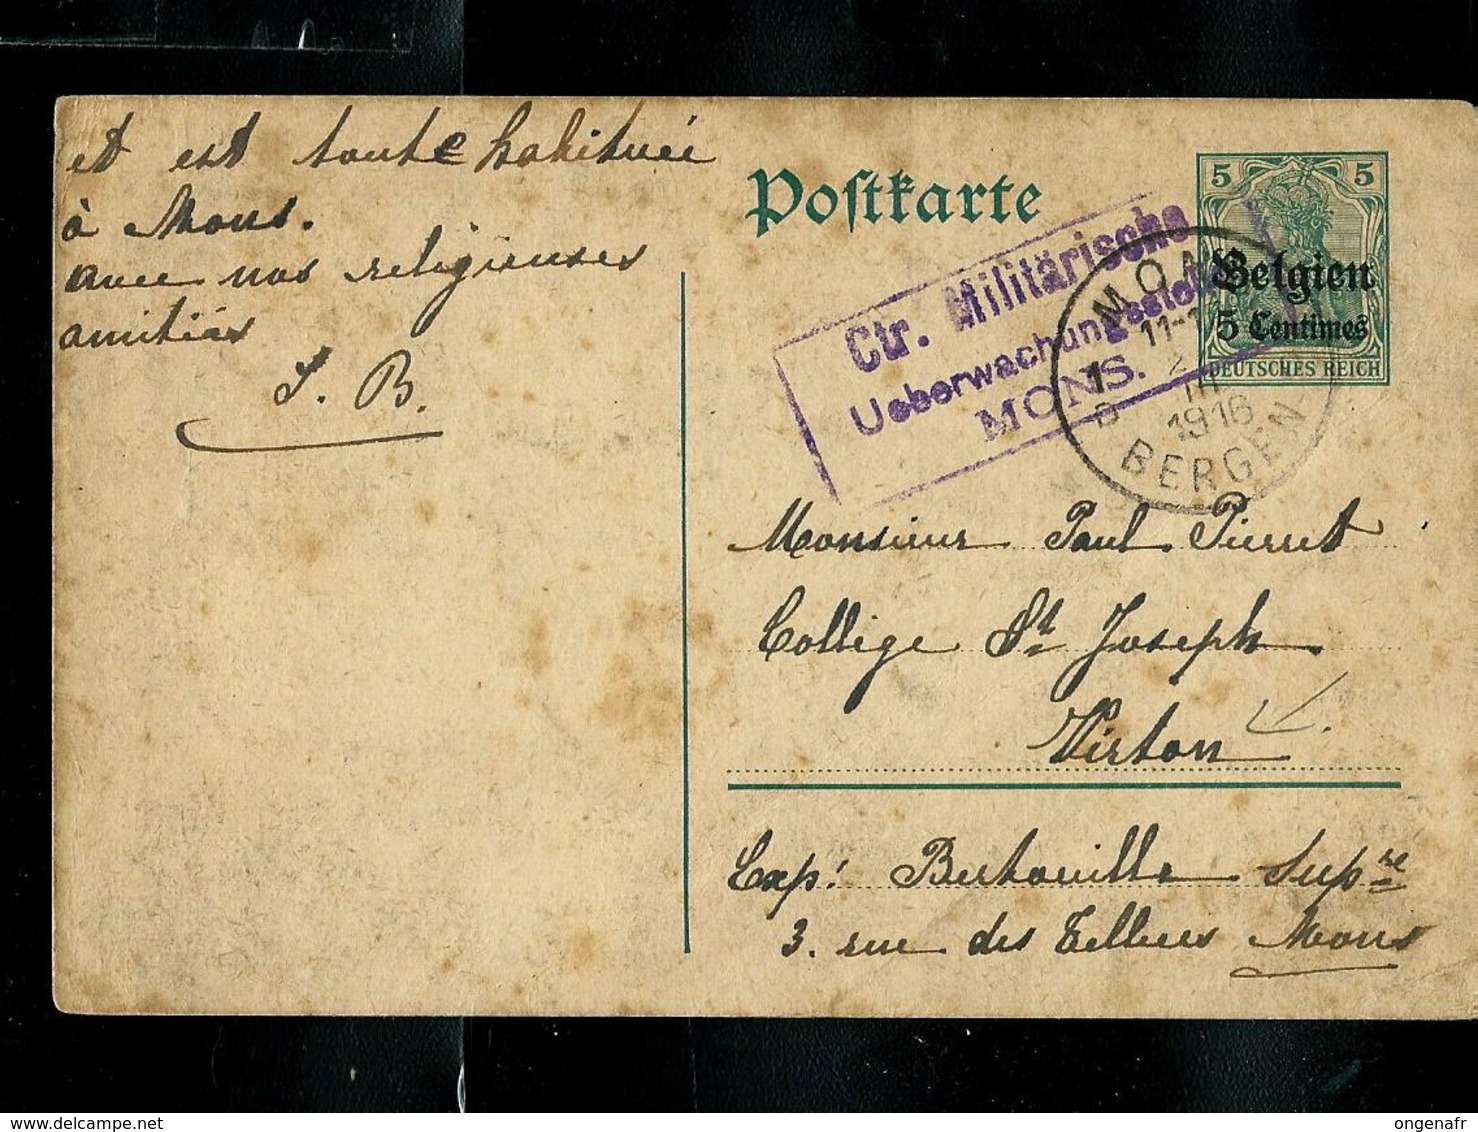 et est toute habituée
à Mons.
avec nos religieuses
amitiés
J. B.
Postkarte
5 5
Belgien
5 Centimes
DEUTSCHES REICH
Ctr. Militärische
Ueberwachungsstelle
MONS.
MONS
11-
1916
BERGEN
Monsieur Paul Pierret
Collège St Joseph
Virton
Exp: Bertouille Supre
3. rue des Telliers Mons
delcampe.net
ongenafr